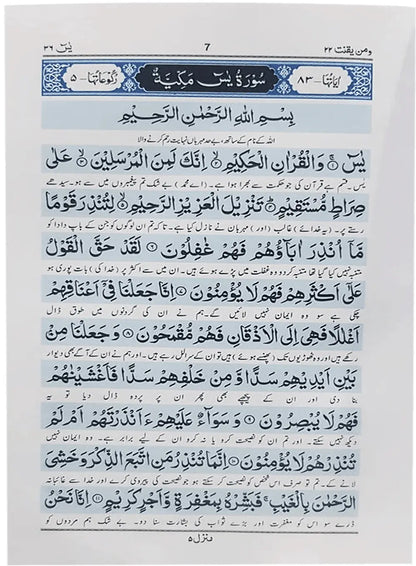 ومن يقنت ٢٢ 7 يٰسٓ ٣٦
اٰیاتها ــ ٨٣ سُوْرَةُ يٰسٓ مَكِّيَّةٌ رکوعاتها ــ ٥
بِسْمِ اللهِ الرَّحْمٰنِ الرَّحِيْمِ
اللہ کے نام کے ساتھ، بے حد مہربان نہایت رحم کرنے والا
يٰسٓ ۚ وَالْقُرْاٰنِ الْحَكِيْمِ ۙ اِنَّكَ لَمِنَ الْمُرْسَلِيْنَ ۙ عَلٰى
یٰس۔ قسم ہے قرآن کی جو حکمت سے بھرا ہوا ہے۔ (اے محمد) بے شک تم پیغمبروں میں سے ہو۔ سیدھے
صِرَاطٍ مُّسْتَقِيْمٍ ۭ تَنْزِيْلَ الْعَزِيْزِ الرَّحِيْمِ ۙ لِتُنْذِرَ قَوْمًا
رستے پر۔ (یہ خدائے) غالب (اور) مہربان نے نازل کیا ہے۔ تاکہ تم ان لوگوں کو جن کے باپ دادا کو
مَّآ اُنْذِرَ اٰبَآؤُهُمْ فَهُمْ غٰفِلُوْنَ ۝ لَقَدْ حَقَّ الْقَوْلُ
متنبہ نہیں کیا گیا تھا متنبہ کردو وہ غفلت میں پڑے ہوئے ہیں۔ ان میں سے اکثر پر (خدا کی) بات پوری ہو
عَلٰٓى اَكْثَرِهِمْ فَهُمْ لَا يُؤْمِنُوْنَ ۝ اِنَّا جَعَلْنَا فِيْٓ اَعْنَاقِهِمْ
چکی ہے سو وہ ایمان نہیں لائیں گے۔ ہم نے ان کی گردنوں میں طوق ڈال
اَغْلٰلًا فَهِيَ اِلَى الْاَذْقَانِ فَهُمْ مُّقْمَحُوْنَ ۝ وَجَعَلْنَا مِنْۢ
رکھے ہیں اور وہ ٹھوڑیوں تک (پھنسے ہوئے) ہیں تو ان کے سر الل رہے ہیں۔ اور ہم نے ان کے آگے بھی دیوار
بَيْنِ اَيْدِيْهِمْ سَدًّا وَّمِنْ خَلْفِهِمْ سَدًّا فَاَغْشَيْنٰهُمْ
بنا دی اور ان کے پیچھے بھی پھر ان پر پردہ ڈال دیا تو یہ
فَهُمْ لَا يُبْصِرُوْنَ ۝ وَسَوَآءٌ عَلَيْهِمْ ءَاَنْذَرْتَهُمْ اَمْ لَمْ
دیکھ نہیں سکتے۔ اور تم ان کو نصیحت کرو یا نہ کرو ان کے لیے برابر ہے۔ وہ ایمان نہیں
تُنْذِرْهُمْ لَا يُؤْمِنُوْنَ ۝ اِنَّمَا تُنْذِرُ مَنِ اتَّبَعَ الذِّكْرَ وَخَشِيَ
لانے کے۔ تم تو صرف اس شخص کو نصیحت کر سکتے ہو جو نصیحت کی پیروی کرے اور خدا سے غائبانہ
الرَّحْمٰنَ بِالْغَيْبِ ۚ فَبَشِّرْهُ بِمَغْفِرَةٍ وَّاَجْرٍ كَرِيْمٍ ۝ اِنَّا نَحْنُ
ڈرے سو اس کو مغفرت اور بڑے ثواب کی بشارت سنا دو۔ بے شک ہم مردوں کو
منزل ۵